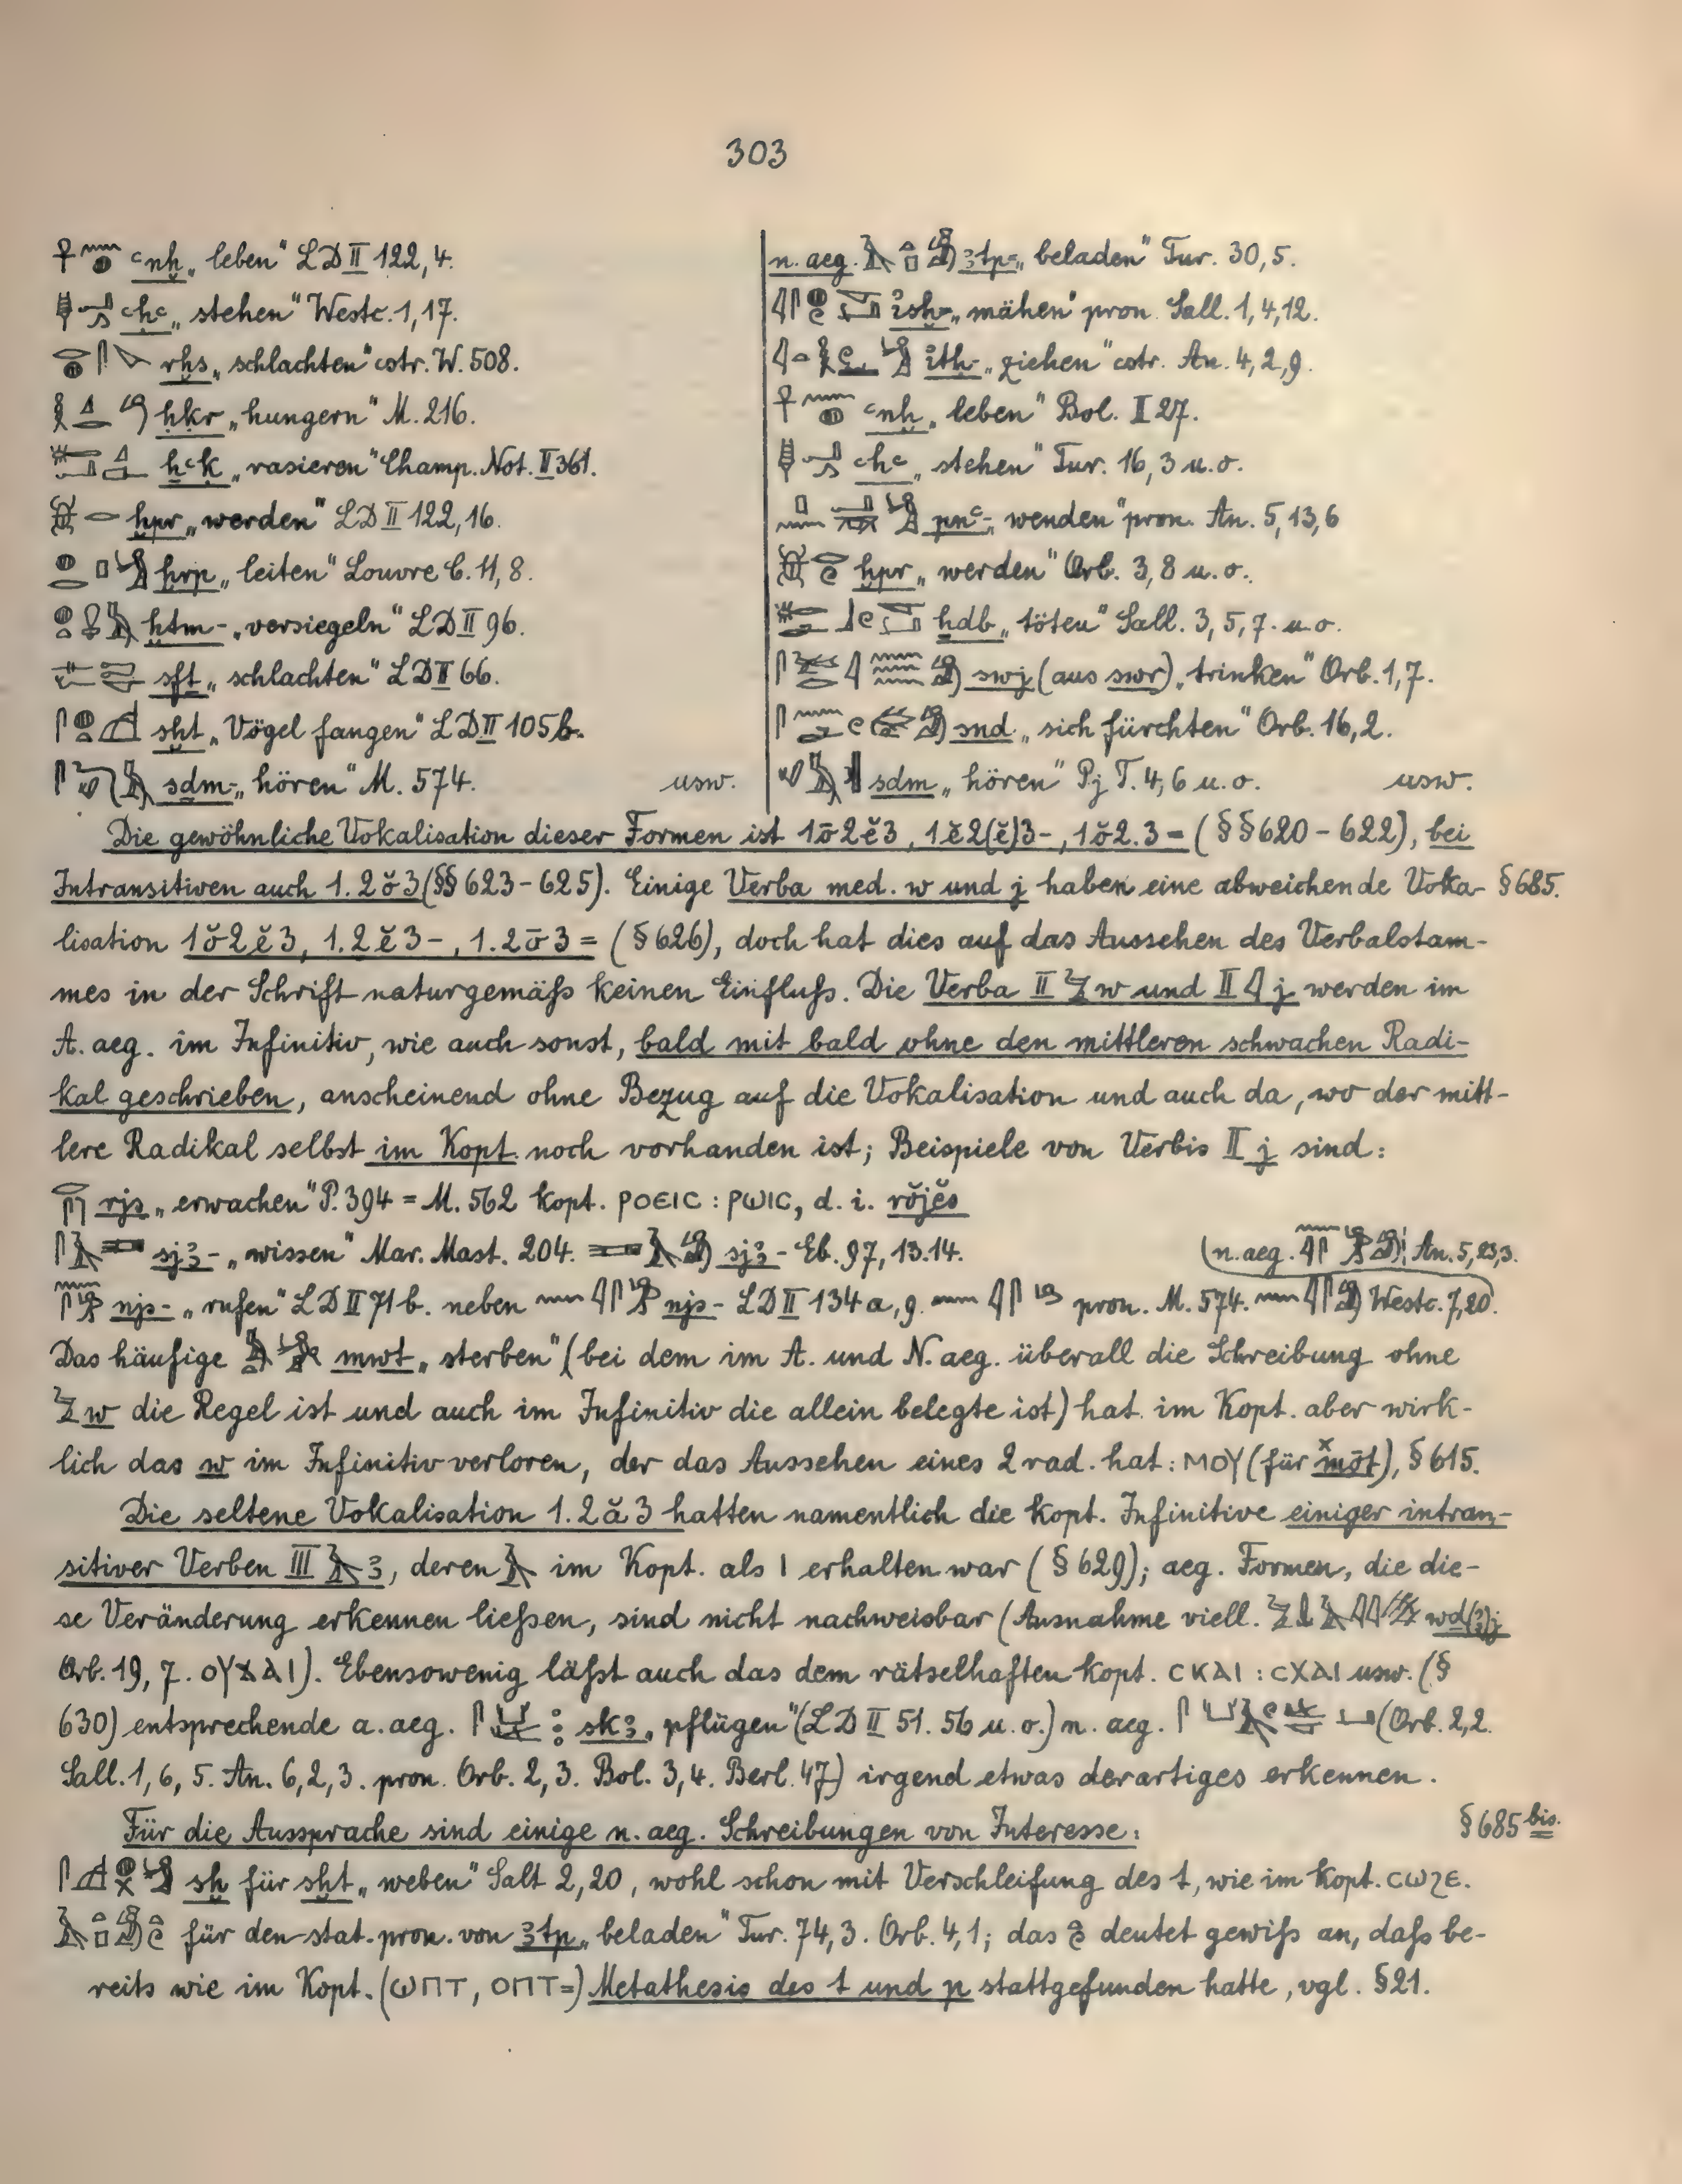 303
ꜥnḫ „leben“ LD II 122,4.
ꜥḥꜥ „stehen“ Westc. 1,17.
rḫs „schlachten“ cstr. W. 508.
ḥḳr „hungern“ M. 216.
ẖꜥḳ „rasieren“ Champ. Not. II 361.
ḫpr „werden“ LD II 122,16.
ḫrp „leiten“ Louvre C. 11,8.
ḫtm- „versiegeln“ LD II 96.
sft „schlachten“ LD II 66.
sḫt „Vögel fangen“ LD II 105b.
sḏm- „hören“ M. 574. usw.
n. aeg. ꜣtp= „beladen“ Tur. 30,5.
ꜣsḫ= „mähen“ pron. Sall. 1,4,12.
ꜣtḥ- „ziehen“ cstr. An. 4,2,9.
ꜥnḫ „leben“ Bol. I 27.
ꜥḥꜥ „stehen“ Tur. 16,3 u. o.
pnꜥ= „wenden“ pron. An. 5,13,6
ḫpr „werden“ Orb. 3,8 u. o.
ẖdb „töten“ Sall. 3,5,7. u. o.
swj (aus swr) „trinken“ Orb. 1,7.
snd „sich fürchten“ Orb. 16,2.
sdm „hören“ Pj T. 4,6 u. o. usw.
Die gewöhnliche Vokalisation dieser Formen ist 1ō2ĕ3, 1ĕ2(ĕ)3-, 1ŏ2.3= (§§ 620-622), bei
Intransitiven auch 1.2ŏ3 (§§ 623-625). Einige Verba med. w und j haben eine abweichende Voka- § 685.
lisation 1ŏ2ĕ3, 1.2ĕ3-, 1.2ō3= (§ 626), doch hat dies auf das Aussehen des Verbalstam-
mes in der Schrift naturgemäſs keinen Einfluſs. Die Verba II 𓅱 w und II 𓇋 j werden im
A. aeg. im Infinitiv, wie auch sonst, bald mit bald ohne den mittleren schwachen Radi-
kal geschrieben, anscheinend ohne Bezug auf die Vokalisation und auch da, wo der mitt-
lere Radikal selbst im Kopt. noch vorhanden ist; Beispiele von Verbis II j sind:
rjs „erwachen“ P. 394 = M. 562 kopt. ⲣⲟⲉⲓⲥ : ⲣⲱⲓⲥ, d. i. rŏjĕs
sjꜣ- „wissen“ Mar. Mast. 204. sjꜣ- Eb. 97, 13.14. (n. aeg. An. 5,23,3.
njs- „rufen“ LD II 71b. neben njs- LD II 134a,9. pron. M. 574. Westc. 7,20).
Das häufige mwt „sterben“ (bei dem im A. und N. aeg. überall die Schreibung ohne
𓅱 w die Regel ist und auch im Infinitiv die allein belegte ist) hat im Kopt. aber wirk-
lich das w im Infinitiv verloren, der das Aussehen eines 2 rad. hat: ⲙⲟⲩ (für ˣmōt), § 615.
Die seltene Vokalisation 1.2ă3 hatten namentlich die kopt. Infinitive einiger intran-
sitiver Verben III 𓄿 ꜣ, deren 𓄿 im Kopt. als ⲓ erhalten war (§ 629); aeg. Formen, die die-
se Veränderung erkennen lieſsen, sind nicht nachweisbar (Ausnahme viell. wd(ꜣ)j
Orb. 19, 7. ⲟⲩϫⲁⲓ). Ebensowenig läſst auch das dem rätselhaften kopt. ⲥⲕⲁⲓ : ⲥⲭⲁⲓ usw. (§
630) entsprechende a. aeg. skꜣ „pflügen“ (LD II 51. 56 u. o.) n. aeg. (Orb. 2,2.
Sall. 1, 6, 5. An. 6, 2, 3. pron. Orb. 2, 3. Bol. 3, 4. Berl. 47) irgend etwas derartiges erkennen.
Für die Aussprache sind einige n. aeg. Schreibungen von Interesse: § 685 bis.
sḫ für sḫt „weben“ Salt 2, 20, wohl schon mit Verschleifung des t, wie im Kopt. ⲥⲱϩⲉ.
für den stat. pron. von ꜣtp „beladen“ Tur. 74, 3. Orb. 4, 1; das deutet gewiſs an, daſs be-
reits wie im Kopt. (ⲱⲡⲧ, ⲟⲡⲧ=) Metathesis des t und p stattgefunden hatte, vgl. § 21.